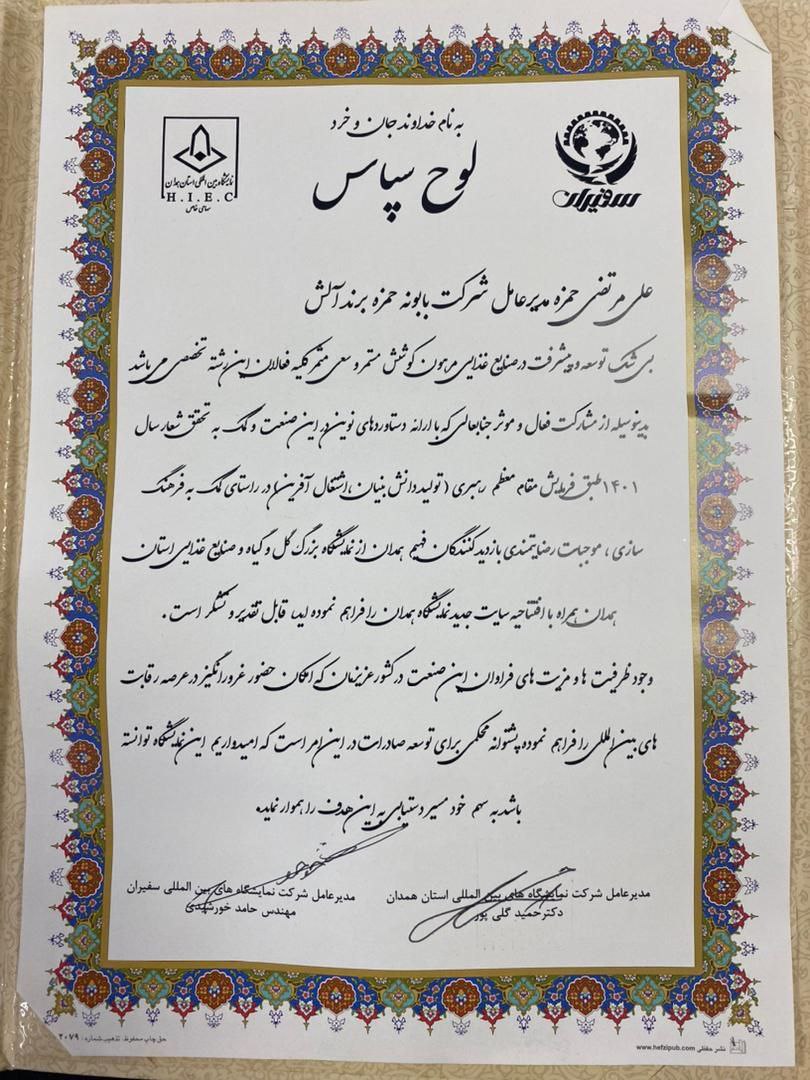 به نام خداوند جان و خرد
لوح سپاس
سفیران
نمایشگاه بین المللی استان همدان
H.I.E.C
سهامی خاص
علی مرتضی حمزه مدیرعامل شرکت بابونه حمزه برند آلش
بی شک توسعه و پیشرفت در صنایع غذایی مرهون کوشش مستمر و سعی مثمر کلیه فعالان این رشته تخصصی می باشد
بدینوسیله از مشارکت فعال و موثر جنابعالی که با ارائه دستاوردهای نوین در این صنعت و کمک به تحقق شعار سال
۱۴۰۱ طبق فرمایش مقام معظم رهبری (تولید دانش بنیان ،اشتغال آفرین) در راستای کمک به فرهنگ
سازی ، موجبات رضایتمندی بازدیدکنندگان فهیم همدان از نمایشگاه بزرگ گل و گیاه و صنایع غذایی استان
همدان همراه با افتتاحیه سایت جدید نمایشگاه همدان را فراهم نموده اید، قابل تقدیر و تشکر است .
وجود ظرفیت ها و مزیت های فراوان این صنعت در کشور عزیزمان که امکان حضور غرورانگیز در عرصه رقابت
های بین المللی را فراهم نموده پشتوانه محکمی برای توسعه صادرات در این امر است که امیدواریم این نمایشگاه توانسته
باشد به سهم خود مسیر دستیابی به این هدف را هموار نماید.
مدیرعامل شرکت نمایشگاه های بین المللی استان همدان
دکتر حمید گلی پور
مدیرعامل شرکت نمایشگاه های بین المللی سفیران
مهندس حامد خورشیدی
نشر حفظی www.hefzipub.com
حق چاپ محفوظ. تذهیب شماره: ۲۰۷۹